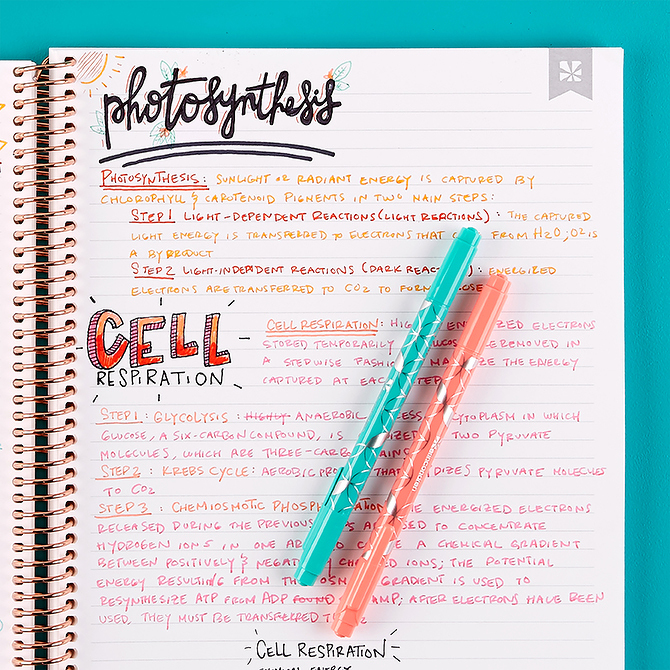 photosynthesis
PHOTOSYNTHESIS: SUNLIGHT OR RADIANT ENERGY IS CAPTURED BY
CHLOROPHYLL & CAROTENOID PIGMENTS IN TWO MAIN STEPS:
STEP 1 LIGHT-DEPENDENT REACTIONS (LIGHT REACTIONS): THE CAPTURED
LIGHT ENERGY IS TRANSFERRED TO ELECTRONS THAT FROM H2O; O2 IS
A BYPRODUCT
STEP 2 LIGHT-INDEPENDENT REACTIONS (DARK REAC : ENERGIZED
ELECTRONS ARE TRANSFERRED TO CO2 TO FORM
CELL
RESPIRATION
CELL RESPIRATION: ELECTRONS
STORED TEMPORARILY REMOVED IN
A STEPWISE THE ENERGY
CAPTURED AT EACH STEP
STEP 1: GLYCOLYSIS: HIGHLY ANAEROBIC CYTOPLASM IN WHICH
GLUCOSE, A SIX-CARBON COMPOUND, IS TWO PYRUVATE
MOLECULES, WHICH ARE THREE-CARB
STEP 2: KREBS CYCLE: AEROBIC THAT PYRUVATE MOLECULES
TO CO2
STEP 3: CHEMIOSMOTIC ENERGIZED ELECTRONS
RELEASED DURING THE PREVIOUS TO CONCENTRATE
HYDROGEN IONS IN ONE A CHEMICAL GRADIENT
BETWEEN POSITIVELY & IONS; THE POTENTIAL
ENERGY RESULTING FROM GRADIENT IS USED TO
RESYNTHESIZE ATP FROM ADP FOUND AMP; AFTER ELECTRONS HAVE BEEN
USED, THEY MUST BE TRANSFERRED
CELL RESPIRATION